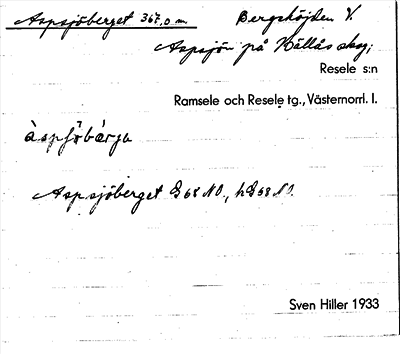 Aspsjöberget 367,0 m. Bergshöjden V.
Aspsjön på Hällås skog;
Resele s:n
Ramsele och Resele tg., Västernorrl. l.
àspʃöbärja
Aspsjöberget G 68 NO., hG 68 NO.
Sven Hiller 1933